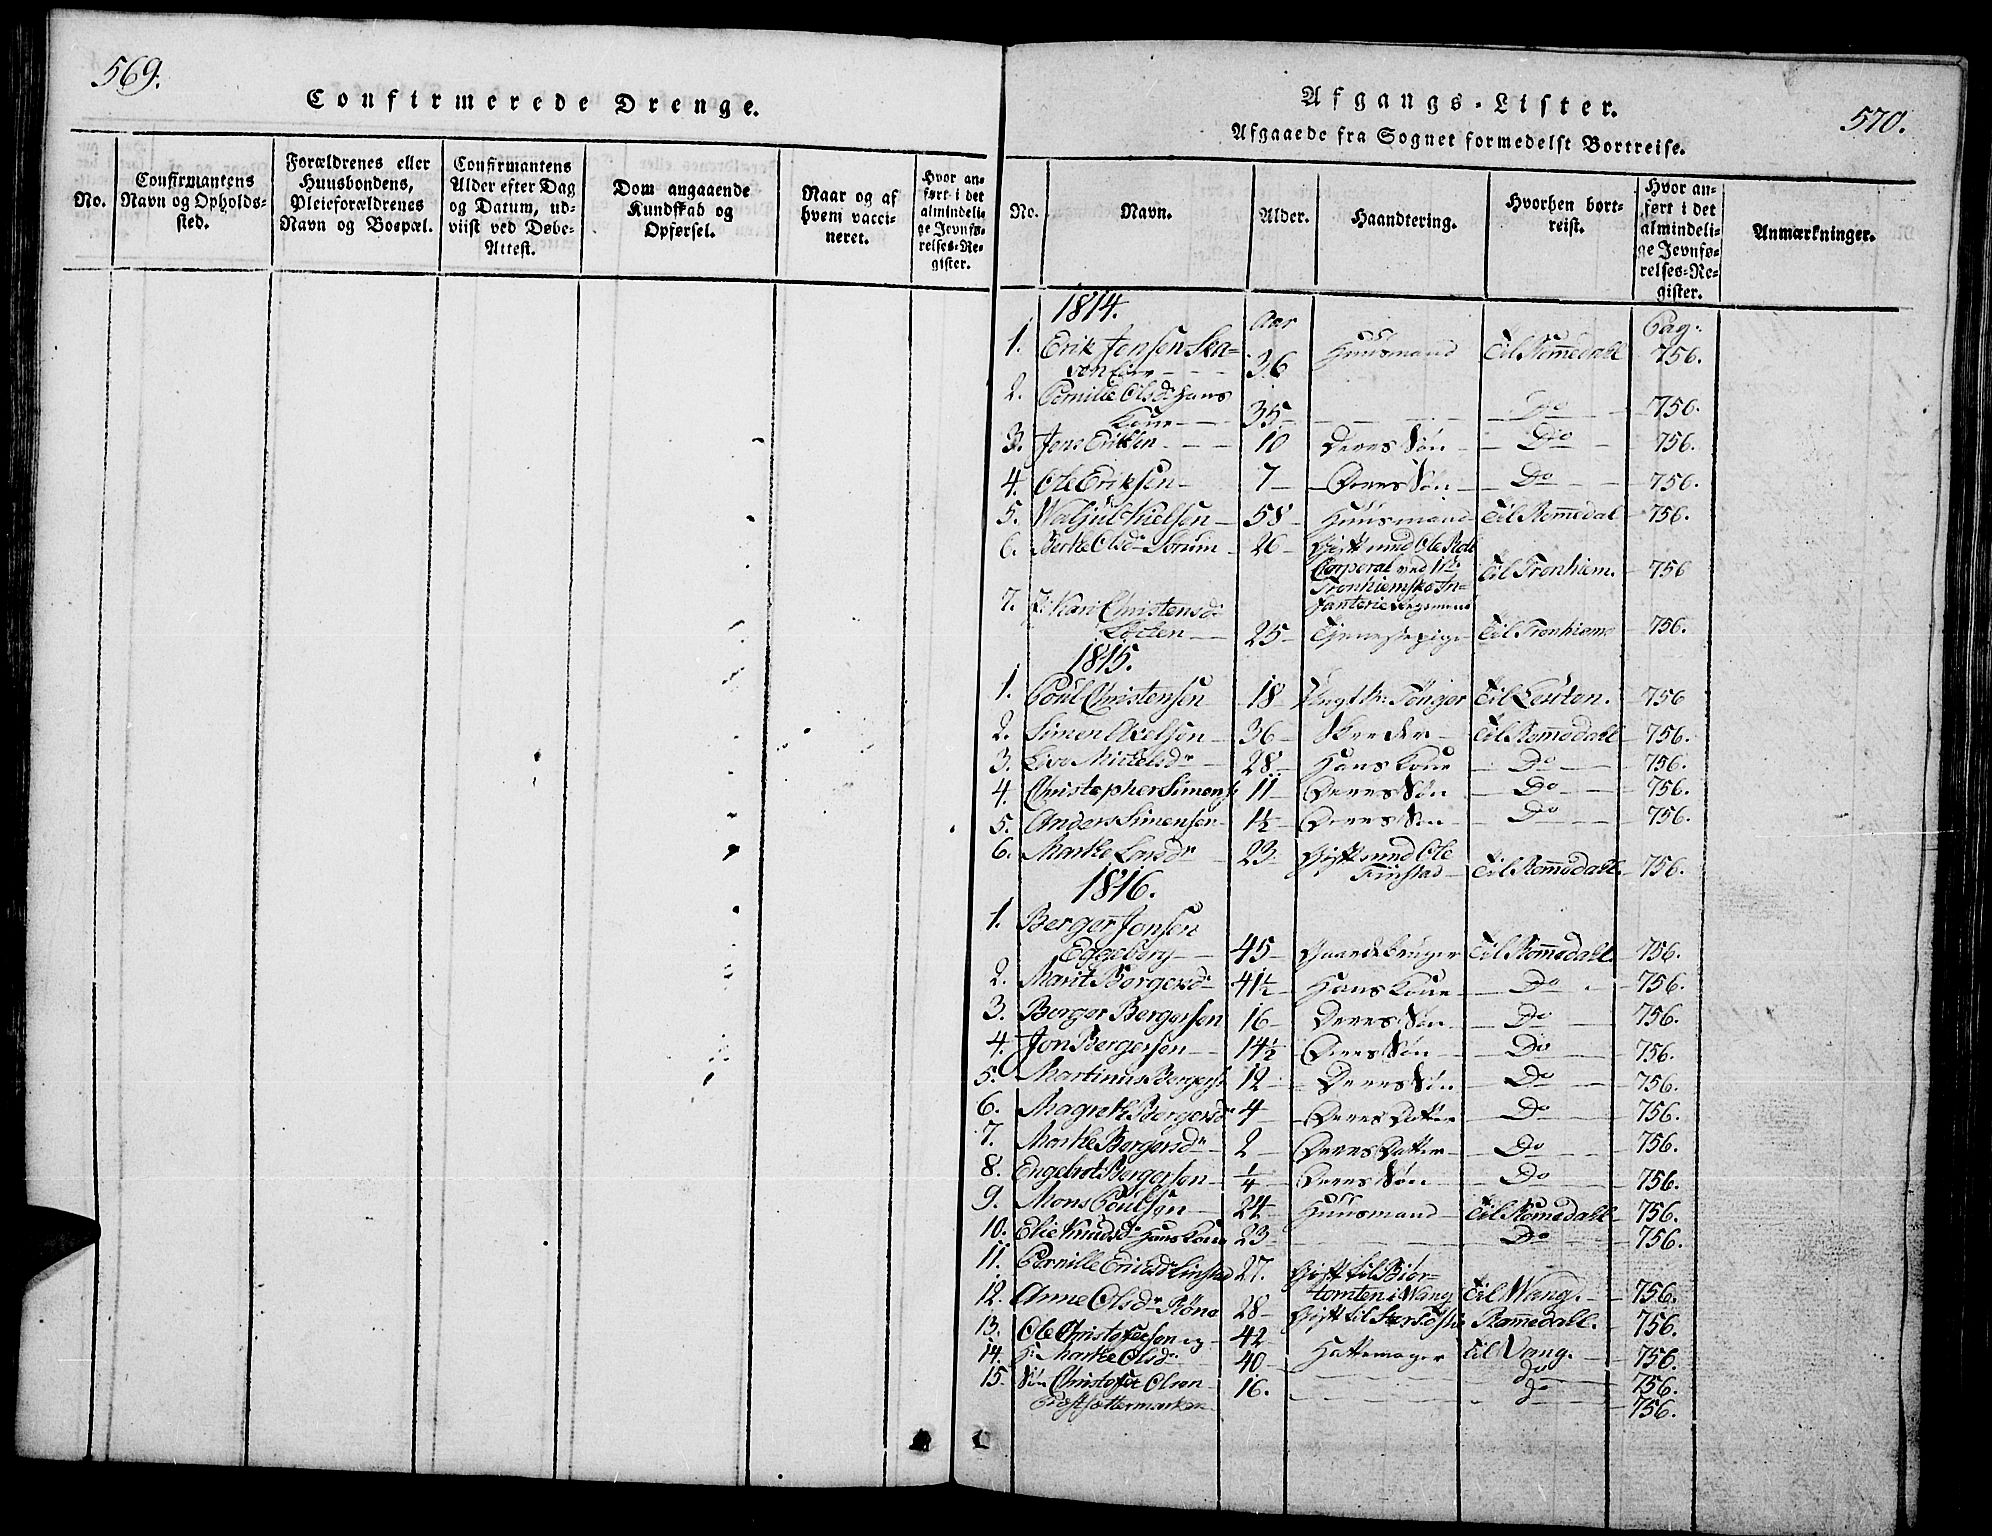 569.
Confirmerede Drenge.
No.
Confirmantens
Navn og Opholds-
sted.
Forældrenes eller
Huusbondens,
Pleieforældrenes
Navn og Bospæl.
Confirmantens
Alder efter Dag
og Datum, ud-
viist ved Døbe-
Attest.
Dom angaaende
Kundskab og
Opførsel.
Naar og af
hvem vacci-
neret.
Hvor an-
ført i det
almindeli-
ge Jevnfø-
relses-Re-
gister.
570.
Afgangs-Lister.
Afgaaede fra Sognet formedelst Bortreise.
No.
Navn.
Alder.
Haandtering.
Hvorhen bort-
reist.
Hvor an-
ført i det
almindeli-
ge Jevnfø-
relses-Re-
gister.
Anmærkninger.
1814.
Aar
Pag.
1. Erik Jonsen Ska-
36 Huusmand Til Romedahl 756.
2. Pernille Olsdr Hans
Kone 35 Do 756.
3. Jens Eriksen 10 Deres Søn Do 756.
4. Ole Eriksen 7 Deres Søn Do 756.
5. Nielsen 58 Huusmand Til Romedal 756.
6. Berte Olsdr Sorum 26 Gift med Ole
Corporal ved
Tronhiemske In- Til Tronhiem. 756
fanterie Regiment
7. Kari Christensdr
Løcken 25 Tienestepige Til Tronhiem 756.
1815.
1. Poul Christensen 18 Til Leuten. 756
2. Simen Axelsen 36 Skreder Til Romedahl 756.
3. Mickelsdr 28 Hans Kone Do 756.
4. Christopher Simens 11 Deres Søn Do 756.
5. Anders Simensen 1½ Deres Søn Do 756.
6. Marthe Larsdr 23 Gift med Ole
Finstad Til Romedahl. 756.
1816.
1. Berger Jonsen
Eggeberg 45 Gaardbruger Til Romedahl. 756.
2. Marit Bergersdr 41½ Hans Kone Do 756.
3. Berger Bergersen 16 Deres Søn Do 756.
4. Jon Bergersen 14½ Deres Søn Do 756.
5. Martinus Bergers 12 Deres Søn Do 756.
6. Magreth Bergersdr 4 Deres Datter Do 756.
7. Marthe Bergersdr 2 Deres Datter Do 756.
8. Engebret Bergersen ¼ Deres Søn Do 756.
9. Mons Poulsen 24 Huusmand Til Romedahl 756.
10. Elie Knudsdr Hans Kone 23 Do 756.
11. Pernille Ericsdr Linstad 27. Gift til Bior-
tomten i Wang Til Wang. 756.
12. Anne Olsdr Røne 28 Gift til Romedall. 756.
13. Ole Christofersen og 42 Hattemager Til Vang. 756.
14. H. Marthe Olsdr 40 Do 756.
15. Søn Christofer Olsen 16. do 756.